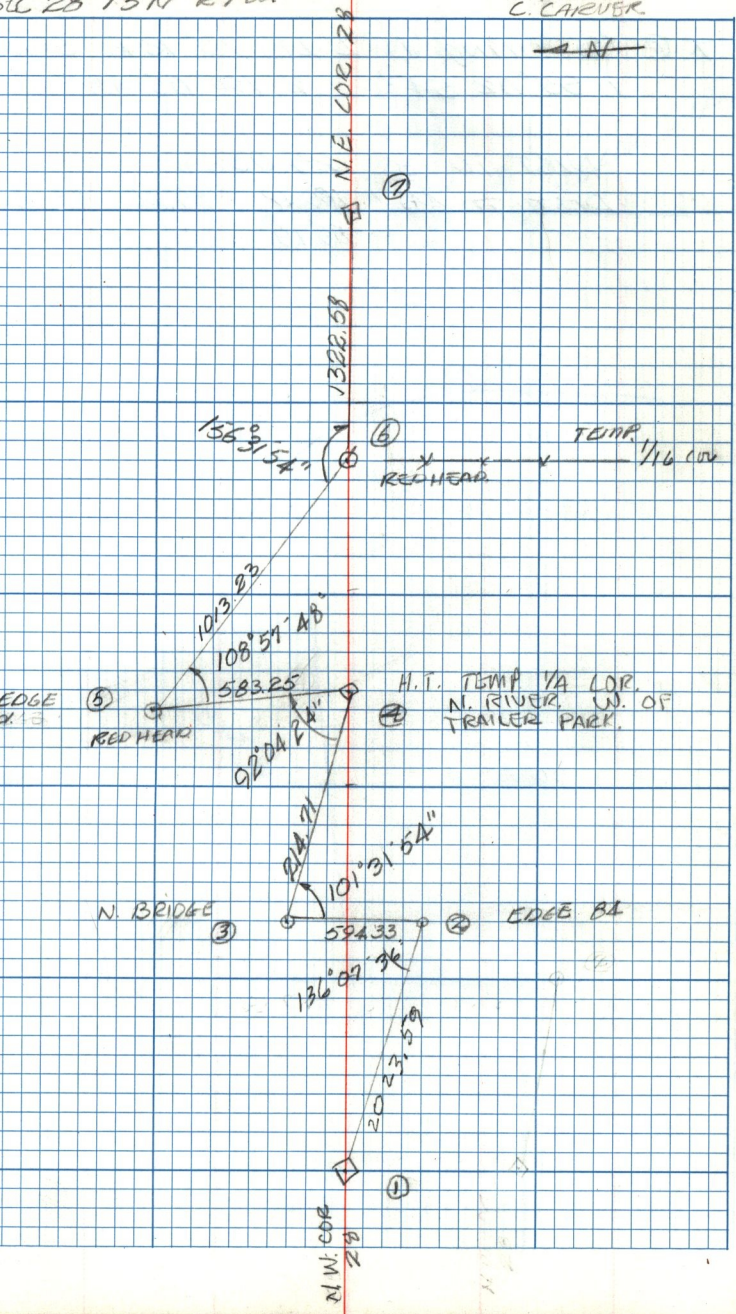 C. CARVER
N
N.E. COR. 28
⑦
1322.58
156°31'54"
⑥
TEMP.
1/16 COR
REDHEAD.
1013.23
108°57'48"
583.25
EDGE
⑤
REDHEAD
H.T. TEMP 1/4 COR.
N. RIVER. W. OF
TRAILER PARK.
④
92°04'24"
214.71
101°31'54"
N. BRIDGE
③
594.33
②
EDGE 84
136°07'36"
2023.59
①
N.W. COR
28